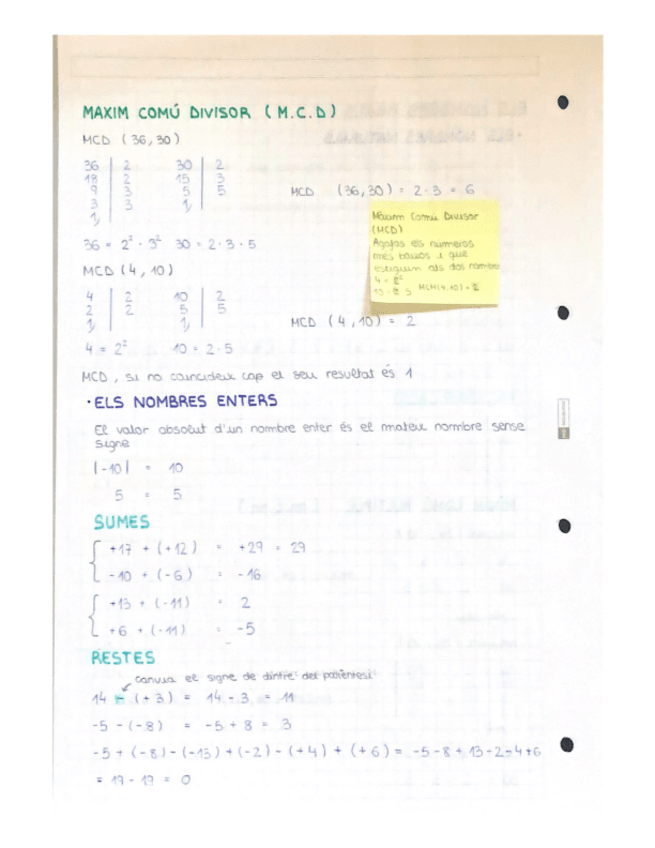 MAXIM COMÚ DIVISOR (M.C.D)
MCD (36,30)
36 | 2    30 | 2
18 | 2    15 | 3
9 | 3    5 | 5
3 | 3    1
1
MCD (36,30) = 2·3 = 6
36 = 2² · 3²   30 = 2·3·5
Màxim Comú Divisor
(MCD)
Agafas els números
més baixos i que
estiguin als dos nombre
MCD (4,10)
4 | 2    10 | 2
2 | 2    5 | 5
1    1
MCD (4,10) = 2
4 = 2²   10 = 2·5
MCD, si no coincideix cap el seu resultat és 1
·ELS NOMBRES ENTERS
El valor absolut d'un nombre enter és el mateix nombre sense
signe
|-10| = 10
5 = 5
SUMES
+17 + (+12) = +29 = 29
-10 + (-6) = -16
+13 + (-11) = 2
+6 + (-11) = -5
RESTES
canvia el signe de dintre del parèntesi
14 - (+3) = 14 - 3 = 11
-5 - (-8) = -5 + 8 = 3
-5 + (-8) - (-13) + (-2) - (+4) + (+6) = -5-8+13-2-4+6
= 19 - 19 = 0